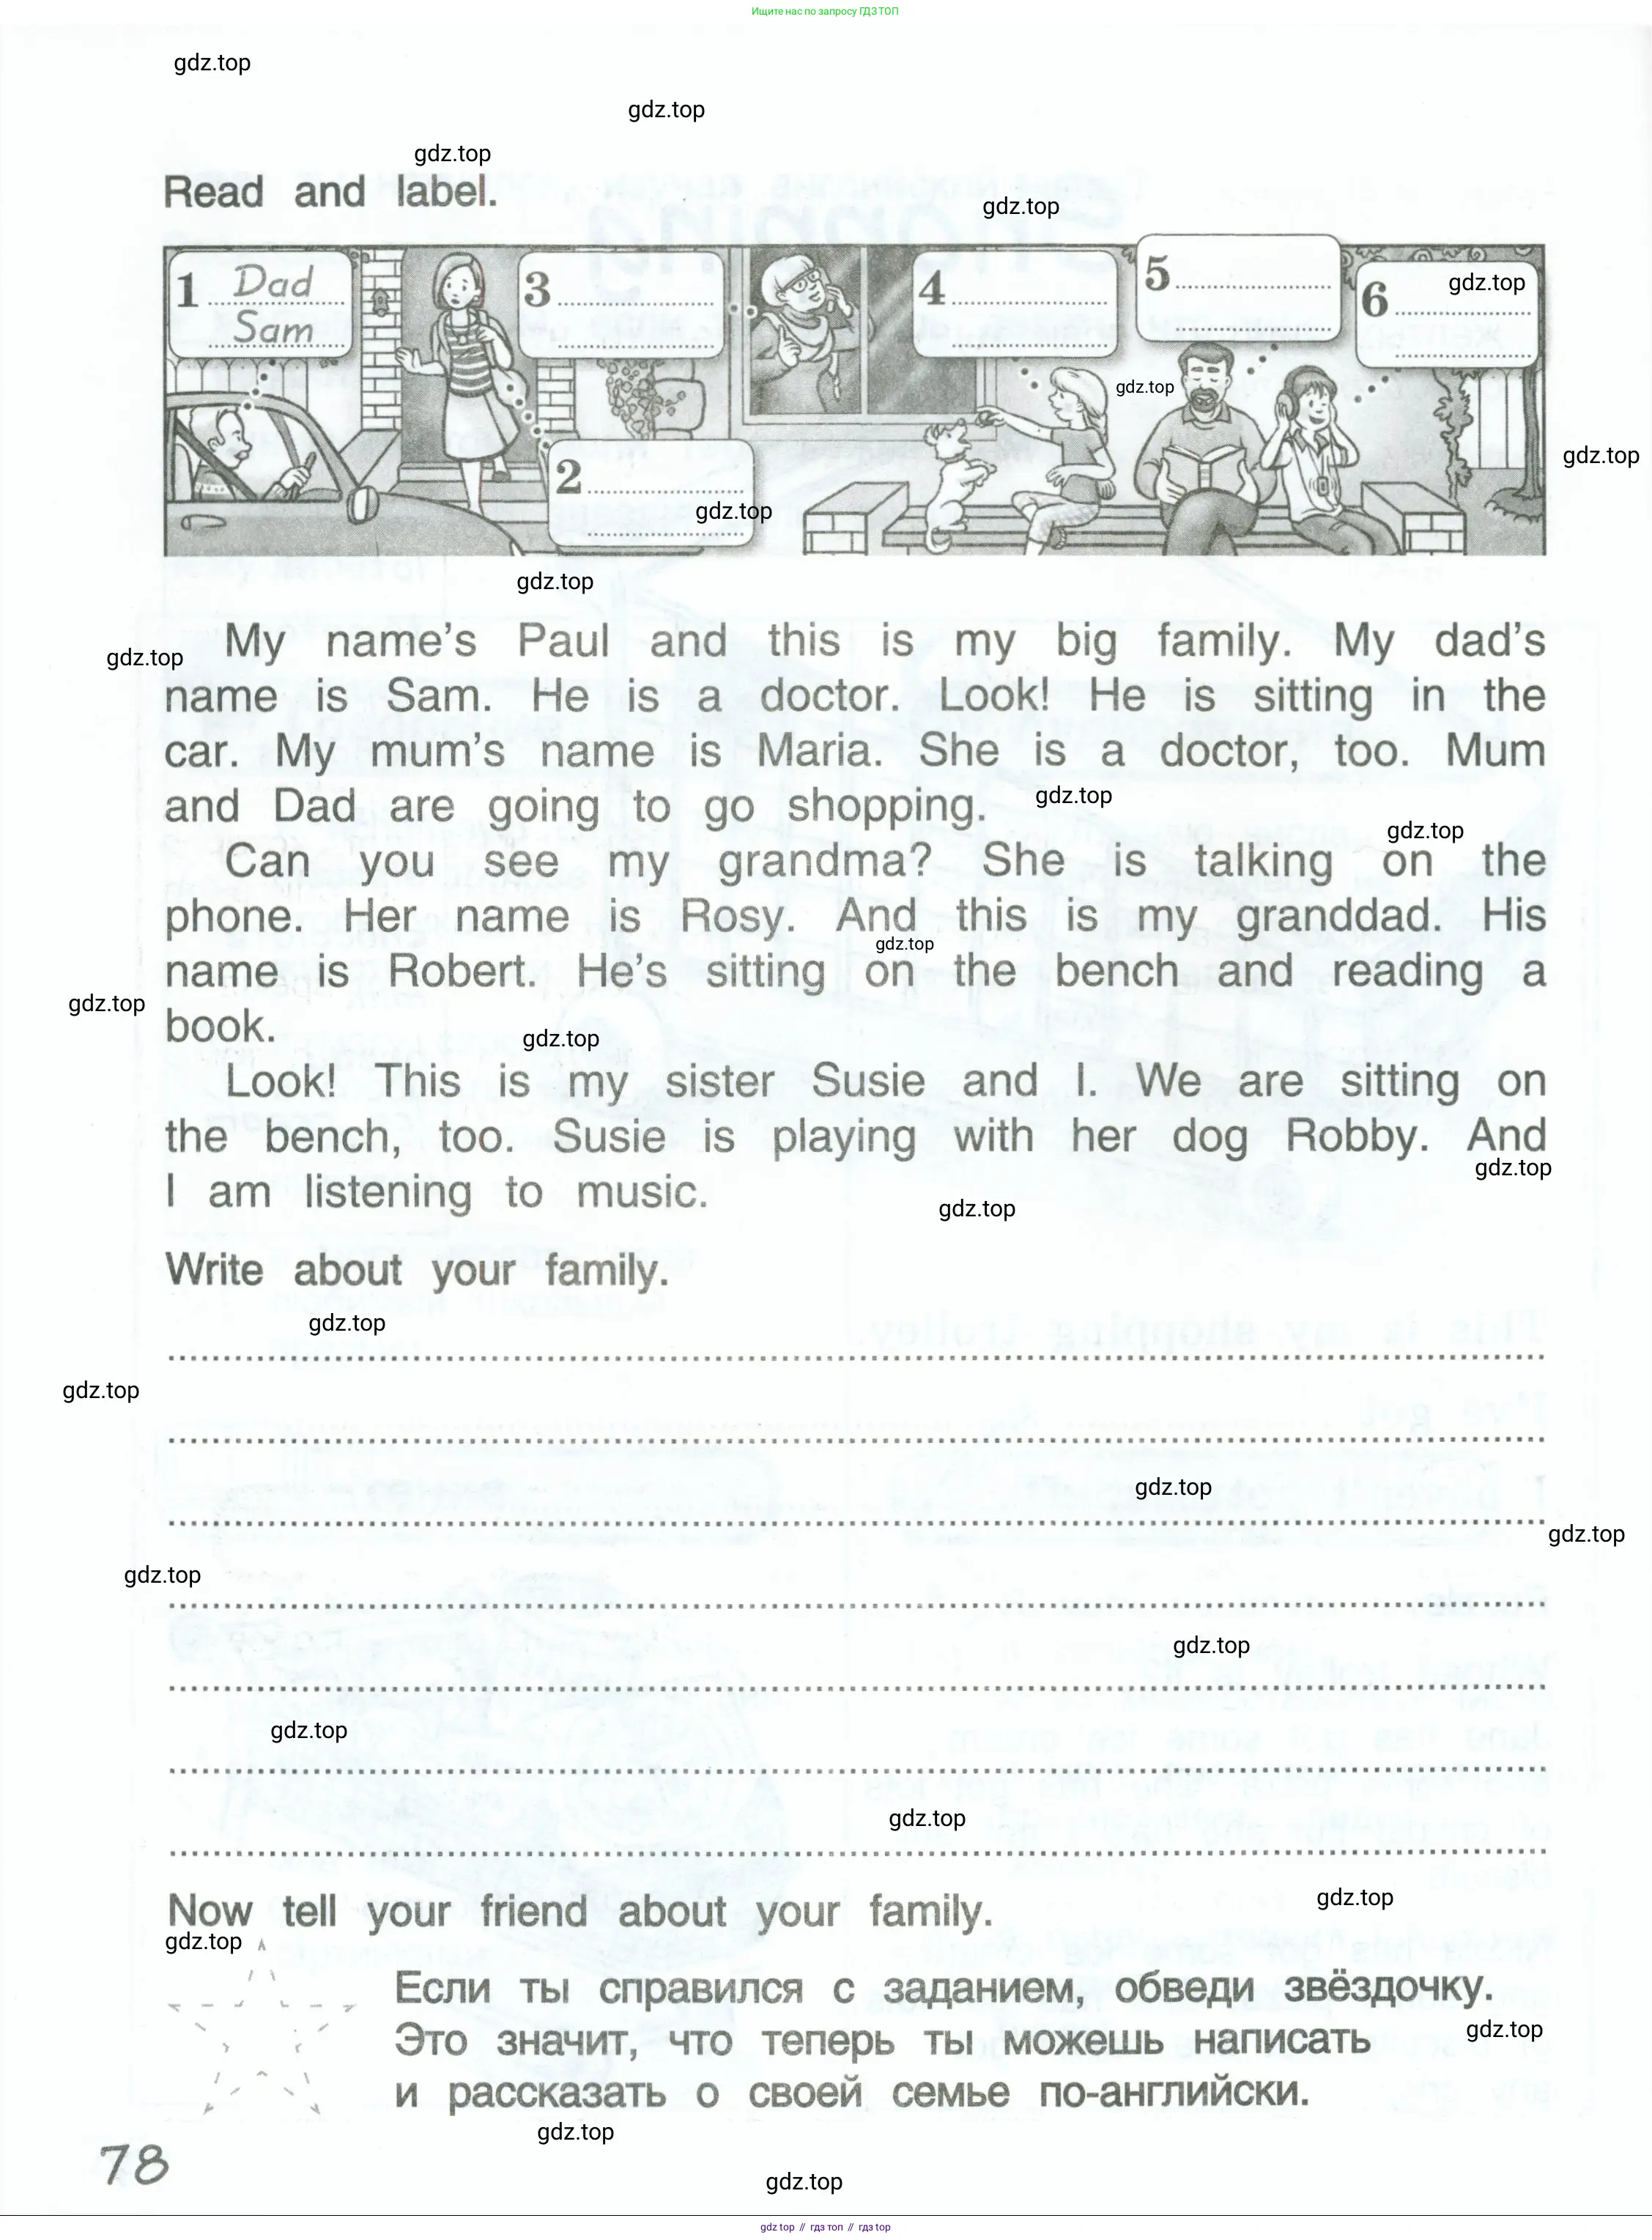 Ищите нас по запросу ГДЗ ТОП
gdz.top
gdz.top
gdz.top
Read and label.
gdz.top
1 Dad
Sam
3
4
5
6
gdz.top
gdz.top
gdz.top
2
gdz.top
gdz.top
My name's Paul and this is my big family. My dad's
gdz.top
name is Sam. He is a doctor. Look! He is sitting in the
car. My mum's name is Maria. She is a doctor, too. Mum
and Dad are going to go shopping.
gdz.top
gdz.top
Can you see my grandma? She is talking on the
phone. Her name is Rosy. And this is my granddad. His
gdz.top
name is Robert. He's sitting on the bench and reading a
gdz.top
book.
gdz.top
Look! This is my sister Susie and I. We are sitting on
the bench, too. Susie is playing with her dog Robby. And
gdz.top
I am listening to music.
gdz.top
Write about your family.
gdz.top
gdz.top
gdz.top
gdz.top
gdz.top
gdz.top
gdz.top
gdz.top
gdz.top
Now tell your friend about your family.
gdz.top
Если ты справился с заданием, обведи звёздочку.
Это значит, что теперь ты можешь написать
gdz.top
и рассказать о своей семье по-английски.
gdz.top
78
gdz.top
gdz top // гдз топ // gdz top